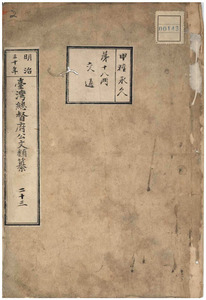 2
00143
甲種永久
第十八門
交通
明治
三十年
臺灣總督府公文類纂
二十三